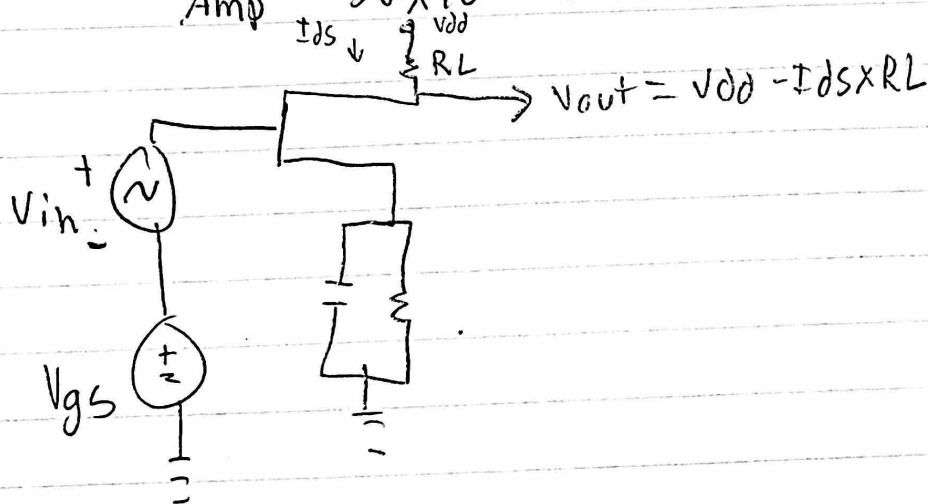 Amp
Ids ↓ Vdd
RL
Vout = Vdd - Ids x RL
+
Vin
-
+
-
Vgs